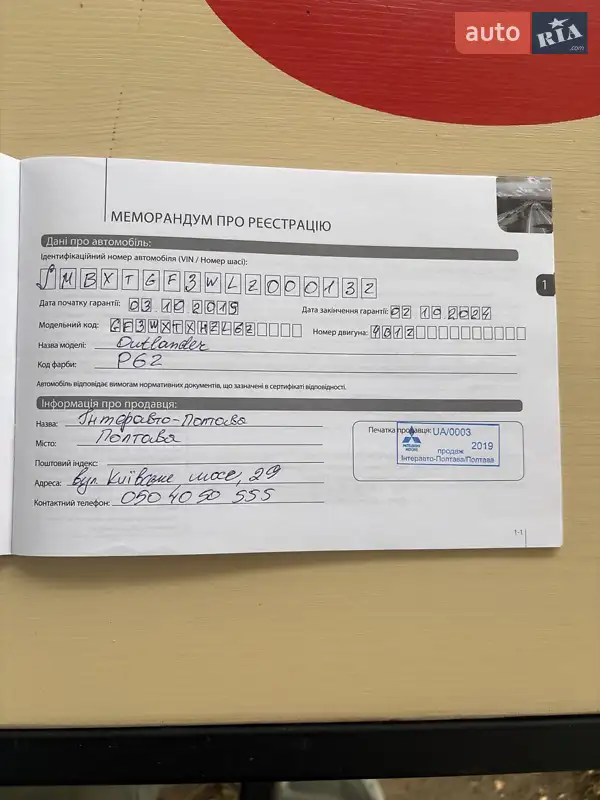 auto RIA .com
МЕМОРАНДУМ ПРО РЕЄСТРАЦІЮ
1
Дані про автомобіль:
Ідентифікаційний номер автомобіля (VIN / Номер шасі):
JMBXTGF3WLZ000132
Дата початку гарантії: 03 10 2019 Дата закінчення гарантії: 02 10 2024
Модельний код: GF3WXTXHZL6Z Номер двигуна: 4J12
Назва моделі: Outlander
Код фарби: P62
Автомобіль відповідає вимогам нормативних документів, що зазначені в сертифікаті відповідності.
Інформація про продавця:
Назва: Інтеравто-Полтава
Місто: Полтава
Поштовий індекс:
Адреса: вул. Київське шосе, 29
Контактний телефон: 050 40 50 555
Печатка продавця: UA/0003
MITSUBISHI MOTORS
продаж 2019
Інтеравто-Полтава/Полтава
1-1